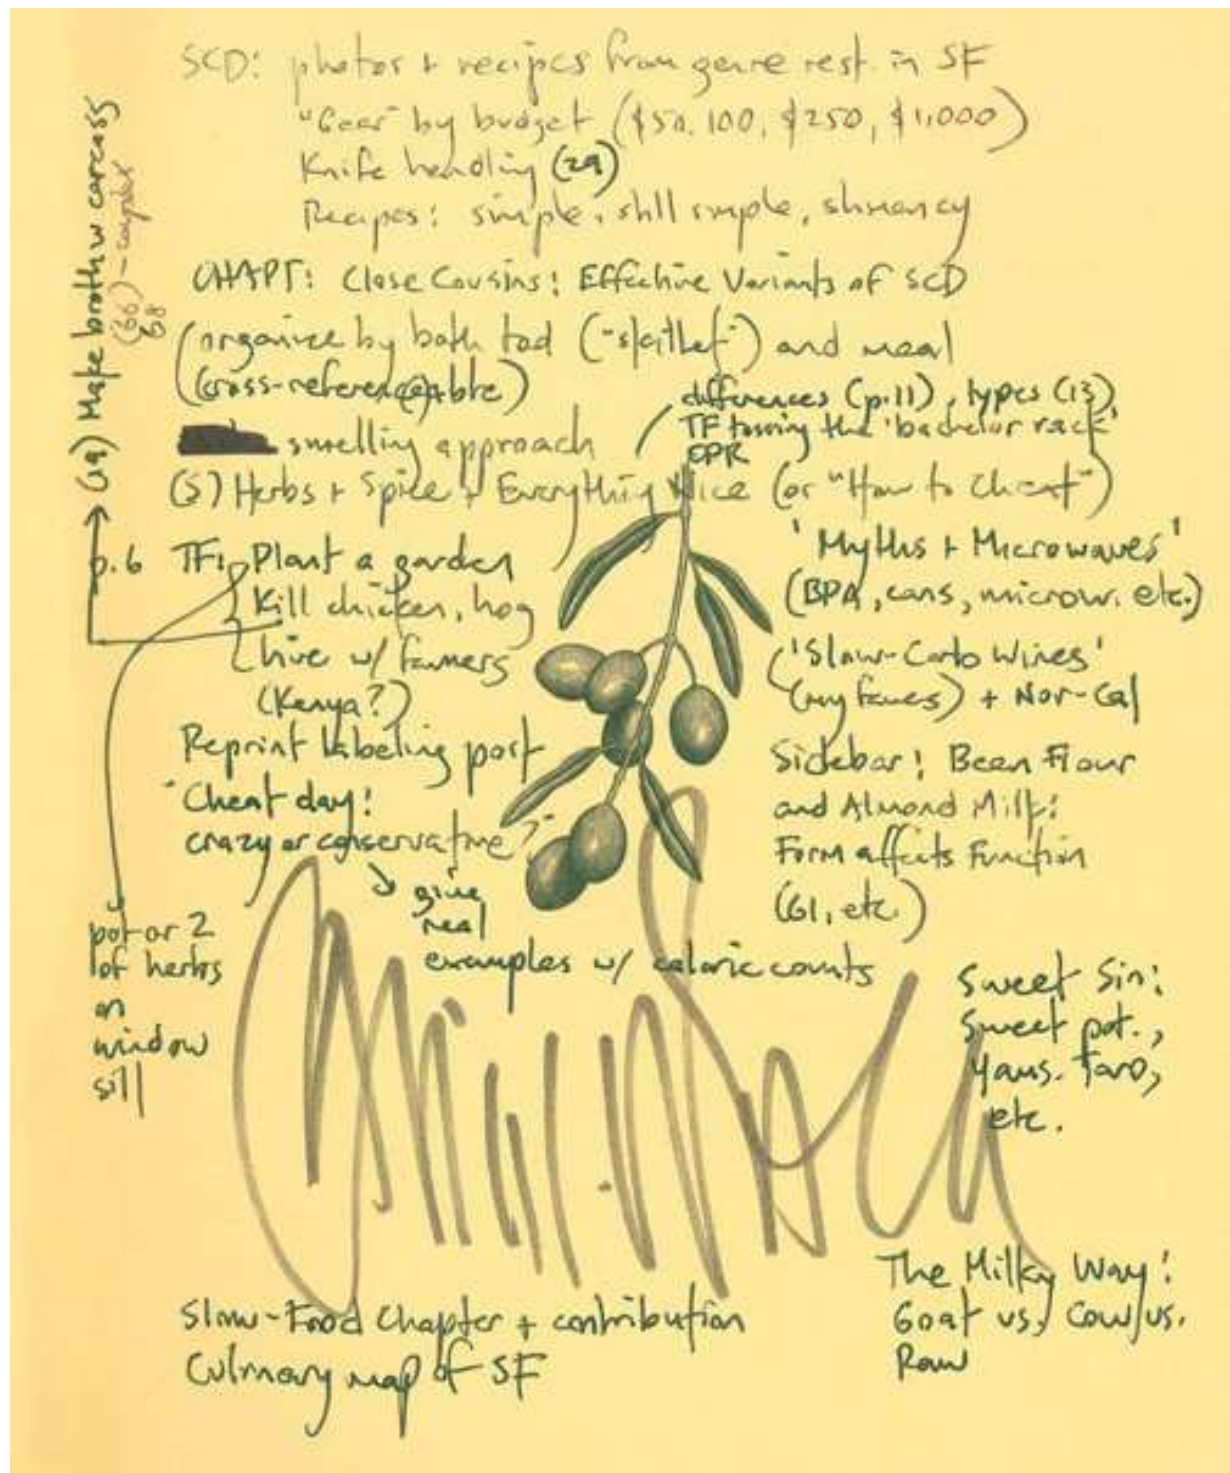 SCD: photos + recipes from genre rest. in SF
"Gear" by budget ($50, 100, $250, $1,000)
Knife handling (29)
Recipes: simple, still simple, shmancy
CHAPT: Close Cousins: Effective Variants of SCD
(organize by both tool ("skillet") and meal
(cross-referenceable)
differences (p.11), types (13)
TF tossing the 'bachelor rack'
smelling approach
(5) Herbs + Spice + Everything Nice (or "How to Cheat")
(19) Make broth w carcass
(66) - complex
68
p.6 TF: Plant a garden
Kill chicken, hog
Live w/ farmers
(Kenya?)
Reprint labeling post
"Cheat day:
crazy or conservative?"
give
real
examples w/ caloric counts
pot or 2
of herbs
on
window
sill
'Myths + Microwaves'
(BPA, cans, microw. etc.)
'Slow-Carb Wines'
(my faves) + Nor-Cal
Sidebar: Bean Flour
and Almond Milk:
Form affects Function
(GI, etc.)
Sweet Sin:
Sweet pot.,
Yams. Taro,
etc.
The Milky Way:
Goat vs. Cow vs.
Raw
Slow-Food Chapter + contribution
Culinary map of SF